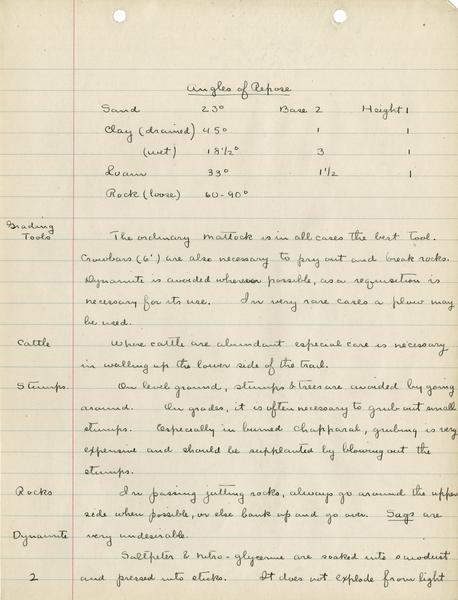 Angles of Repose
Sand 23° Base 2 Height 1
Clay (drained) 45° 1 1
(wet) 18 1/2° 3 1
Loam 33° 1 1/2 1
Rock (loose) 60-90°
Grading Tools
The ordinary mattock is in all cases the best tool.
Crowbars (6') are also necessary to pry out and break rocks.
Dynamite is avoided wherever possible, as a requisition is
necessary for its use. In very rare cases a plow may
be used.
Cattle Where cattle are abundant especial care is necessary
in walling up the lower side of the trail.
Stumps. On level ground, stumps & trees are avoided by going
around. On grades, it is often necessary to grub out small
stumps. Especially in burned chapparal, grubing is very
expensive and should be supplanted by blowing out the
stumps.
Rocks In passing jutting rocks, always go around the upper
side when possible, or else bank up and go over. Sags are
Dynamite very undesirable.
Saltpeter & nitro-glycerine are soaked into sawdust
2 and pressed into sticks. It does not explode from light